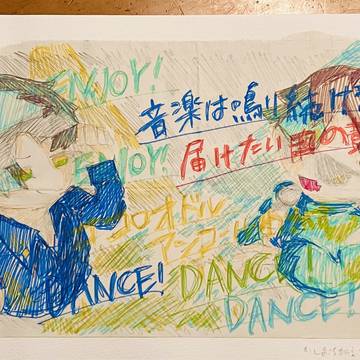 ENJOY!
音楽は鳴り続ける
ENJOY!
届けたい
ココロオドル
アンコール
DANCE!
DANCE!
DANCE!